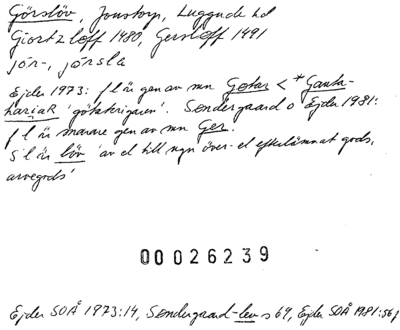 Görslöv, Jonstorp, Luggude hd
Giortzloff 1480, Gersloff 1491
jór-, jórsla
Ejder 1973: fl är gen av mn Gotar < *Gauta-
hariaR 'götakrigaren'. Søndergaard o Ejder 1981:
fl är snarare gen av mn Ger.
Sl är löv 'av el till ngn över- el efterlämnat gods,
arvegods'
00026239
Ejder SOÅ 1973:14, Søndergaard -lev s 69, Ejder SOÅ 1981:56f